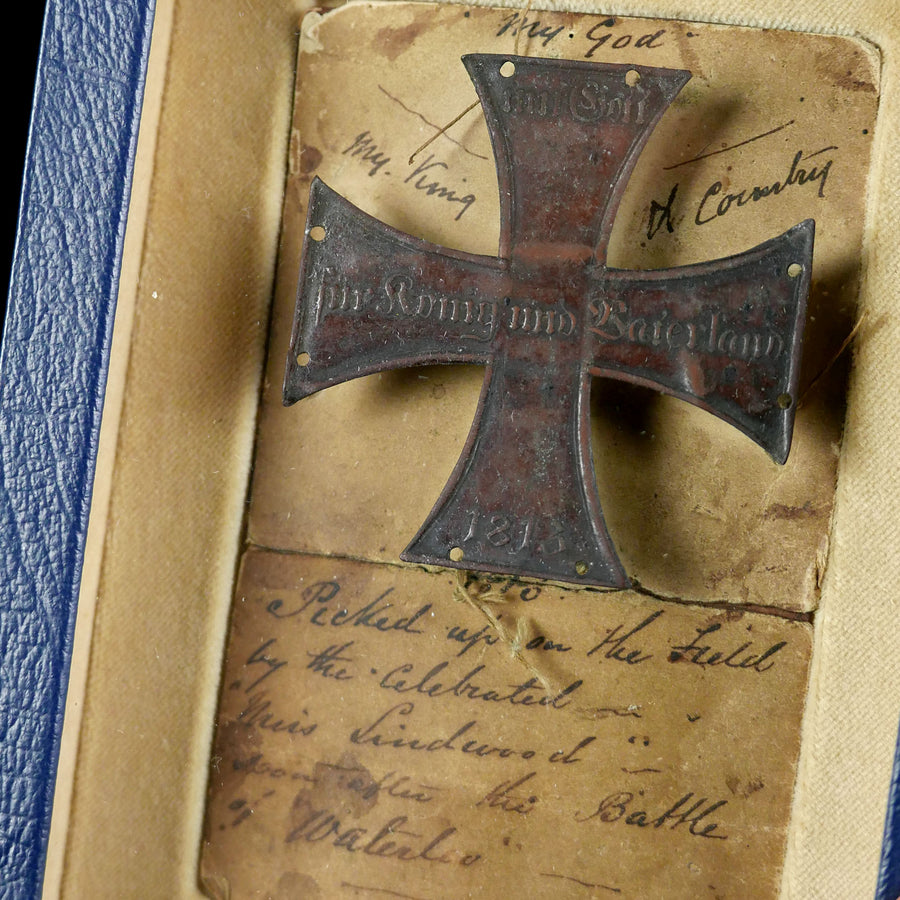 My God
mit Gott
My King
& Country
für König und Vaterland
1813
Picked up on the Field
by the Celebrated
"Miss Lindwood"
soon after the Battle
of "Waterloo"